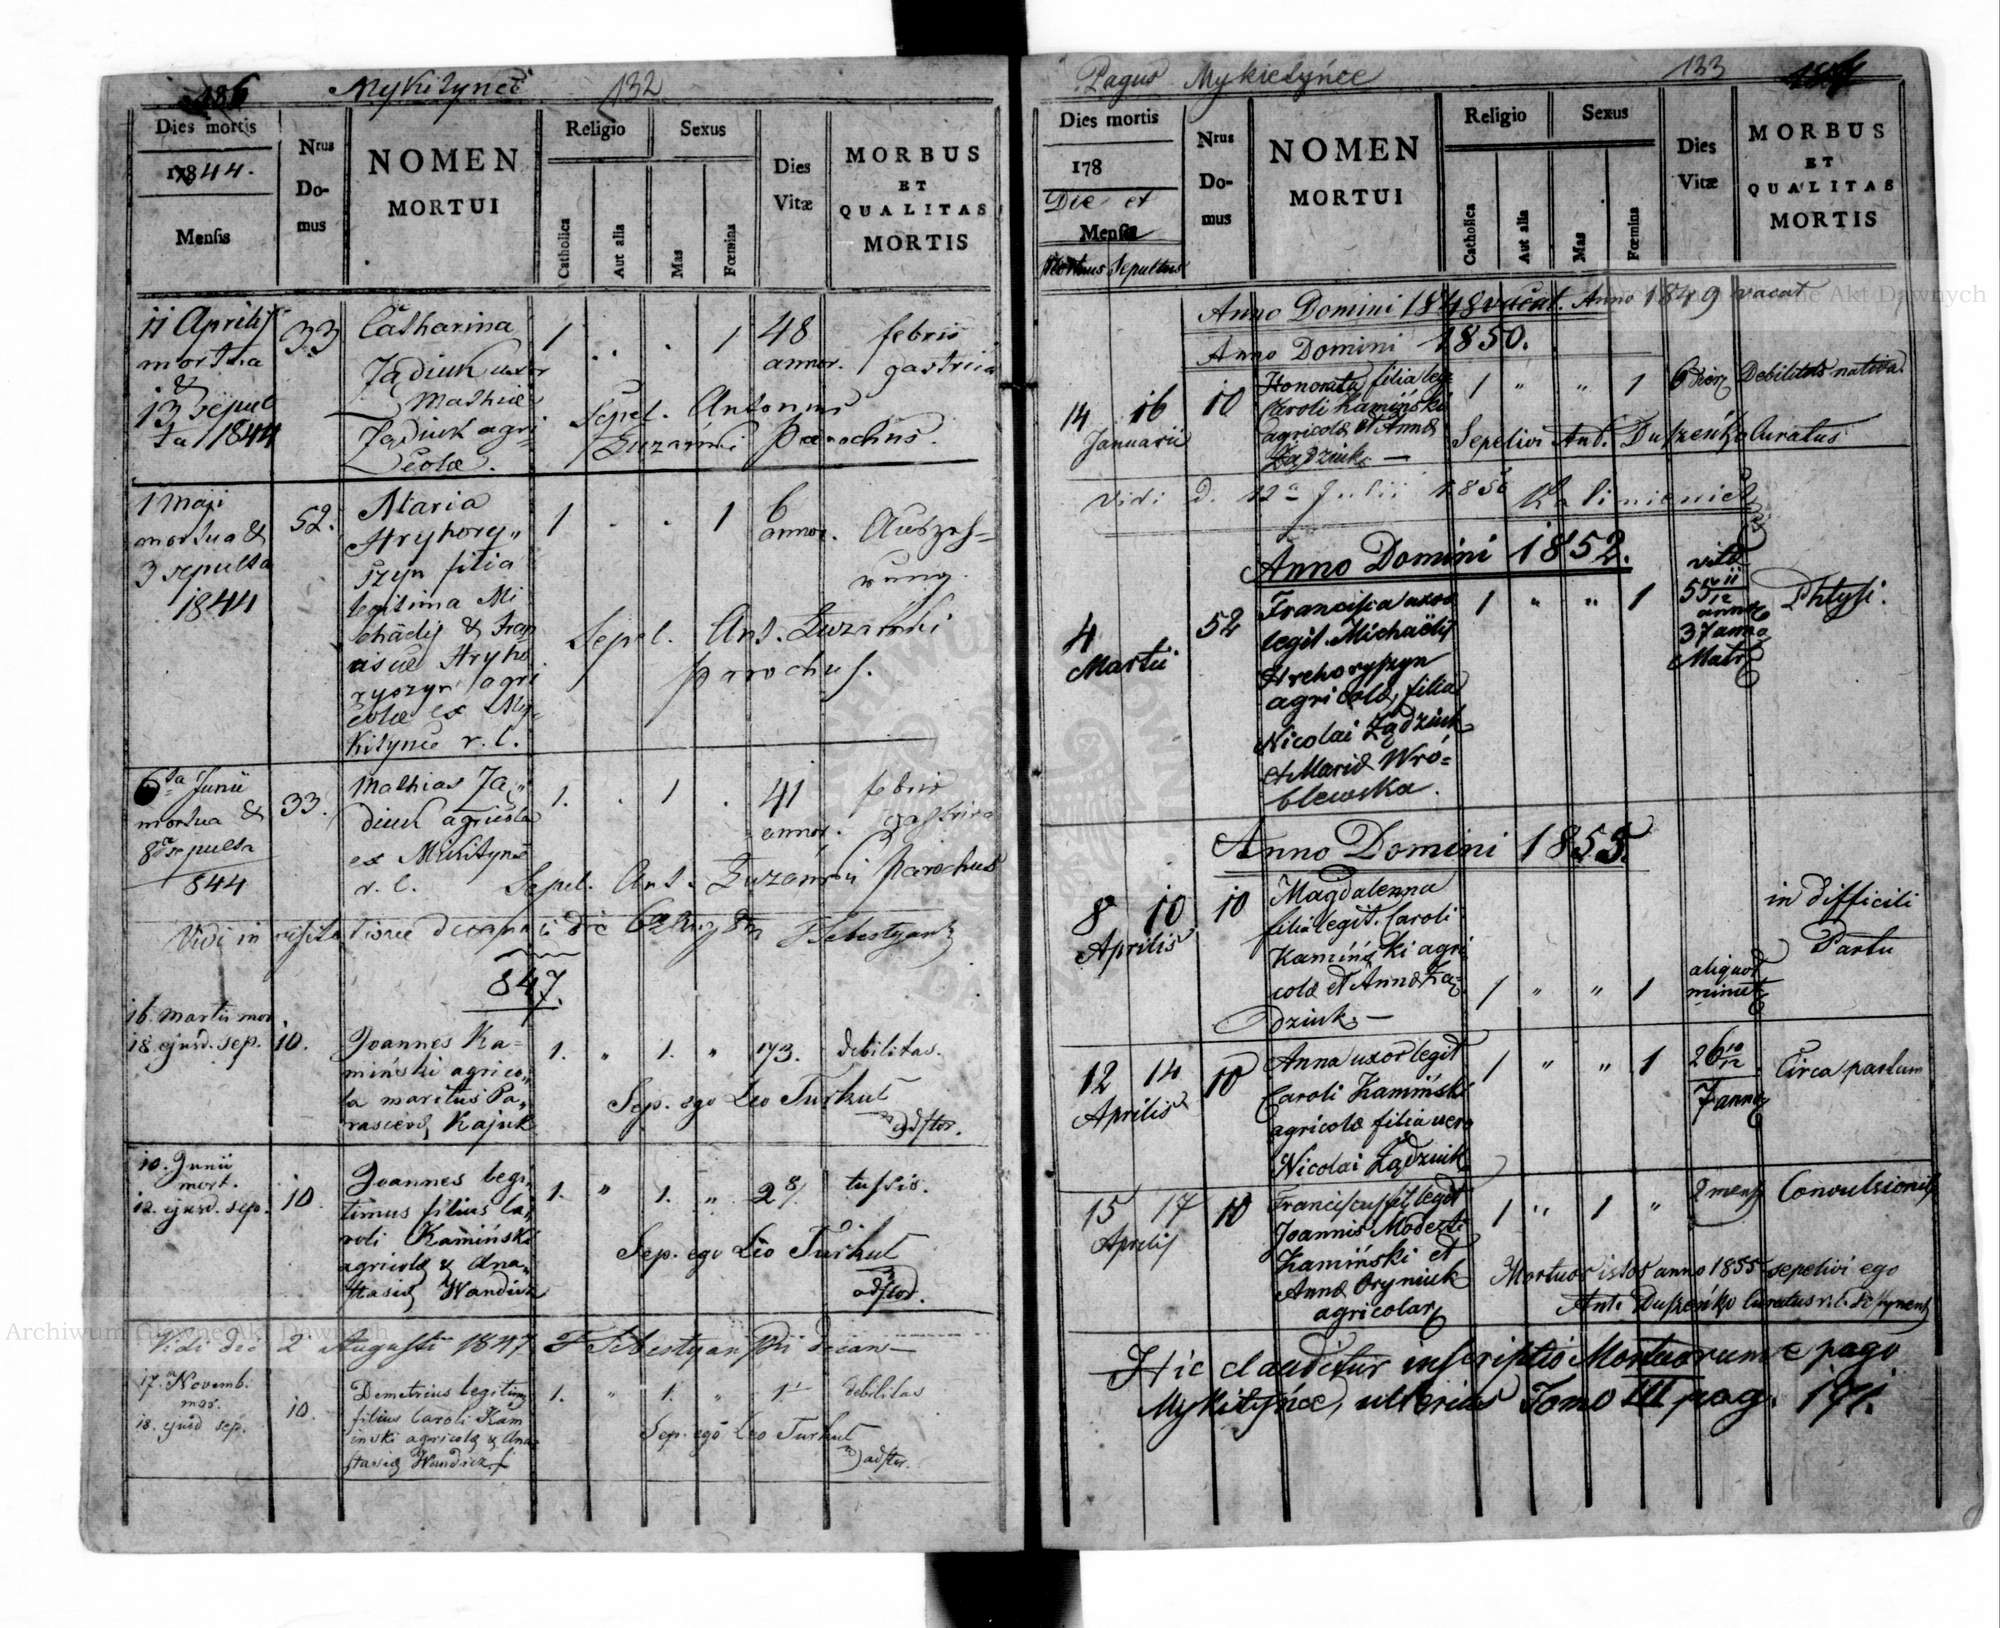 Mykityncé 132
Dies mortis
1844.
Menſis
Nrus
Do-
mus
NOMEN
MORTUI
Religio
Catholica
Aut alia
Sexus
Mas
Fœmina
Dies
Vitæ
MORBUS
ET
QUALITAS
MORTIS
11 Aprilis
mortua
&
13 sepul
ta 1844
33
Catharina
Jądiuk uxor
Mathiæ
Jądiuk agri-
colæ.
1 . . 1
48
annor.
febris
gastrica
Sepel. Antonius
Parochus.
1 Maji
mortua &
3 sepulta
1844
52.
Maria
Hryhory„
szyn filia
legitima Mi
chaëlis & Fran
ciscæ Hryho
ryszyn agri
colæ ex My-
kitynce r. l.
1 . . 1
6
annor.
Auszeh=
rung.
Sepel. Ant.
parochus.
6ta Junii
mortua &
8va sepulta
844
33.
Mathias Ja„
diuk agricola
ex Mikitynce
r. l.
1. . 1 .
41
annor.
febris
gastrica
Sepel. Ant. Parochus
Vidi in visitatione decanali die
847.
16. Martii mor.
18. ejusd. sep.
10.
Joannes Ka=
miński agrico„
la maritus Pa„
rascevæ Kajuk
1. „ 1. „ 73.
debilitas.
Sep. ego Leo Turkut
adstor.
10. Junii
mort.
12. ejusd. sep.
10.
Joannes legi„
timus filius Ca„
roli Kamiński
agricolæ & Ana„
stasiæ Wandiuk
1. „ 1. „ 2
tussis.
Sep. ego Leo Turkut
adstor.
Vidi die 2 Augusti 1847 decan
17. Novemb.
mor.
18. ejusd sep.
10.
Demetrius legitimus
filius Caroli Kam
inski agricolæ & Ana
stasiæ
1. „ 1. „ 1
debilitas
Sep. ego Leo Turkut
adstor.
Pagus Mykietyńce 133
Dies mortis
178
Die et
Menſis
Mortuus Sepultus
Nrus
Do-
mus
NOMEN
MORTUI
Religio
Catholica
Aut alia
Sexus
Mas
Fœmina
Dies
Vitæ
MORBUS
ET
QUALITAS
MORTIS
Anno Domini 1848 vacat. Anno 1849 vacat
Anno Domini 1850.
14 16
Januarii
10
Honorata filia leg.
Caroli Kamiński
agricolæ et Annæ
Ządziuk. —
1 „ „ 1
6 hor.
Debilitas nativa.
Sepelivi Ant. Duszeńko Curatus
Vidi d. 12a Julii 1850
Anno Domini 1852.
4
Martii
52
Francisca uxor
legit. Michaëlis
Hrehoryszyn
agricolæ, filia
Nicolai Ządziuk
et Mariæ Wró=
blewska.
1 „ „ 1
vitæ
55 11/12
annor
37 anno
Matr
Phtysi.
Anno Domini 1855.
8 10
Aprilis
10
Magdalenna
filia legit. Caroli
Kamiński agri
colæ et Annæ Zą=
dziuk. —
1 „ „ 1
aliquot
minut
in difficili
Partu
12 14
Aprilis
10
Anna uxor legit
Caroli Kamiński
agricolæ filia vero
Nicolai Ządziuk
1 „ „ 1
26 10/12
7 anno
Circa partum
15 17
Aprilis
10
Franciscus fil. legit
Joannis Modesti
Kamiński et
Annæ Oryniuk
agricolar
1 „ 1 „
2 mens
Convulsionis
Mortuos istos anno 1855 sepelivi ego
Ant. Duszeńko Curatus r. l.
Hic clauditur inscriptio Mortuorum e pago
Mykityńce, ulterius Tomo III pag. 171.
Archiwum Główne Akt Dawnych
Archiwum Główne Akt Dawnych